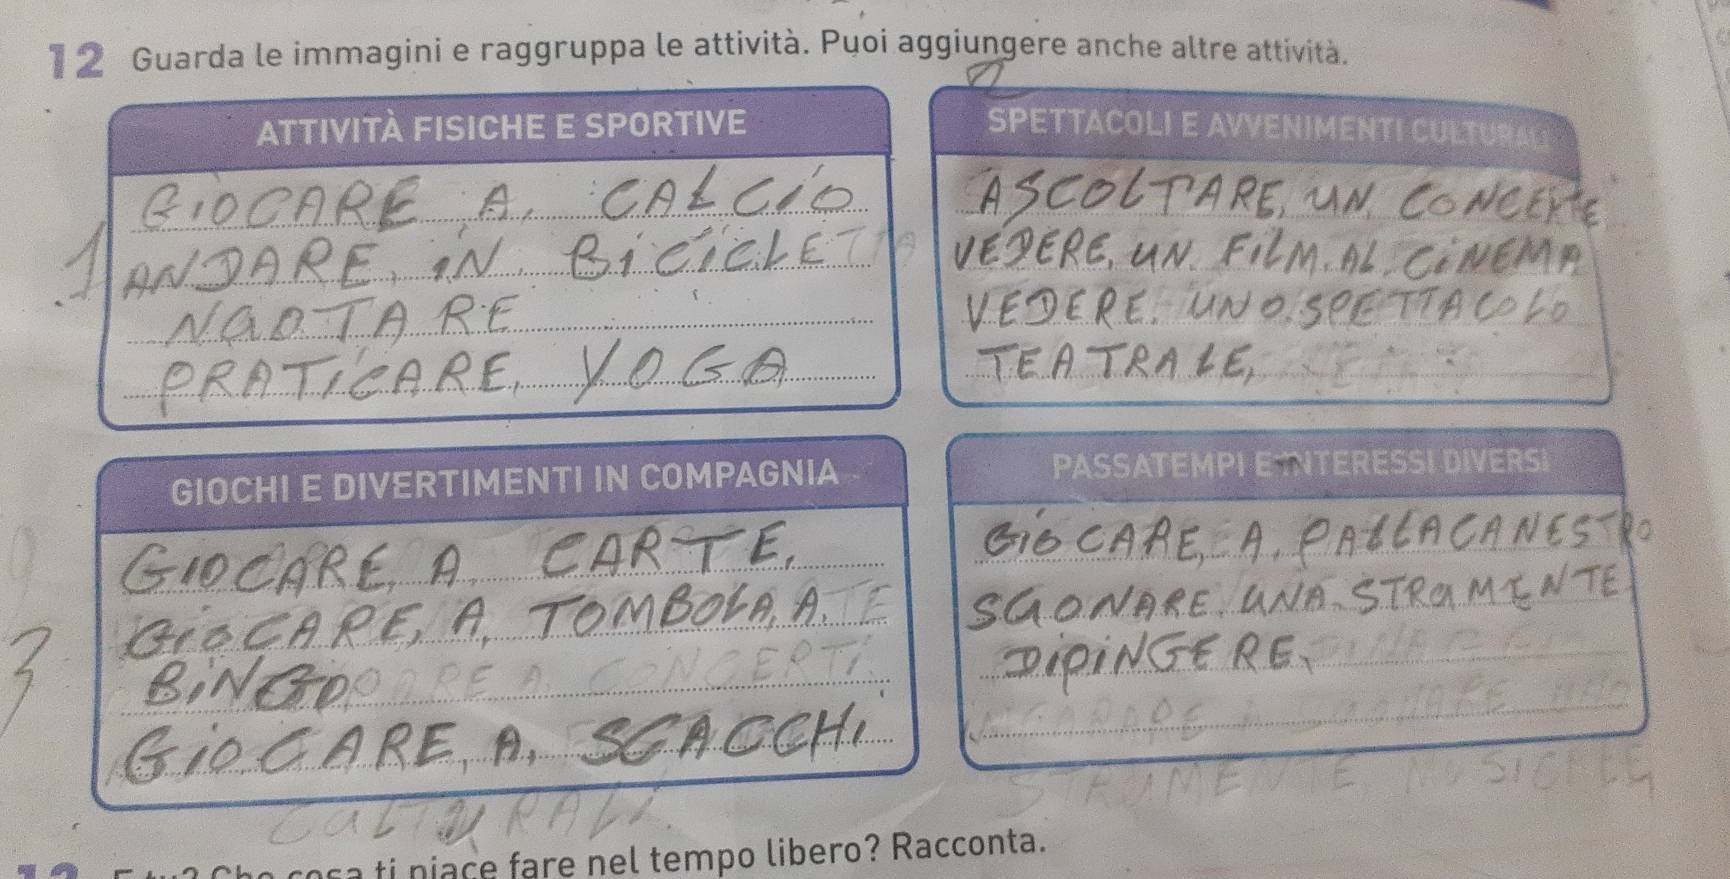 12 Guarda le immagini e raggruppa le attività. Puoi aggiungere anche altre attività.
ATTIVITÀ FISICHE E SPORTIVE
GIOCARE A, CALCIO
ANDARE, IN. BICICLETTA
NUOTARE
PRATICARE, YOGA
2
SPETTACOLI E AVVENIMENTI CULTURALI
ASCOLTARE, UN, CONCERTE
VEDERE, UN. FILM. AL. CINEMA
VEDERE. UNO. SPETTACOLO
TEATRALE,
1
GIOCHI E DIVERTIMENTI IN COMPAGNIA
GIOCARE, A CARTE,
GIOCARE, A, TOMBOLA, A.
BINGO
GIOCARE, A, SCACCHI
3
PASSATEMPI E INTERESSI DIVERSI
GIOCARE, A, PALLACANESTRO
SUONARE. UNA. STRUMENTE
DIPINGERE,
STRUMENTE MUSICLE
CULTURALI
cosa ti piace fare nel tempo libero? Racconta.